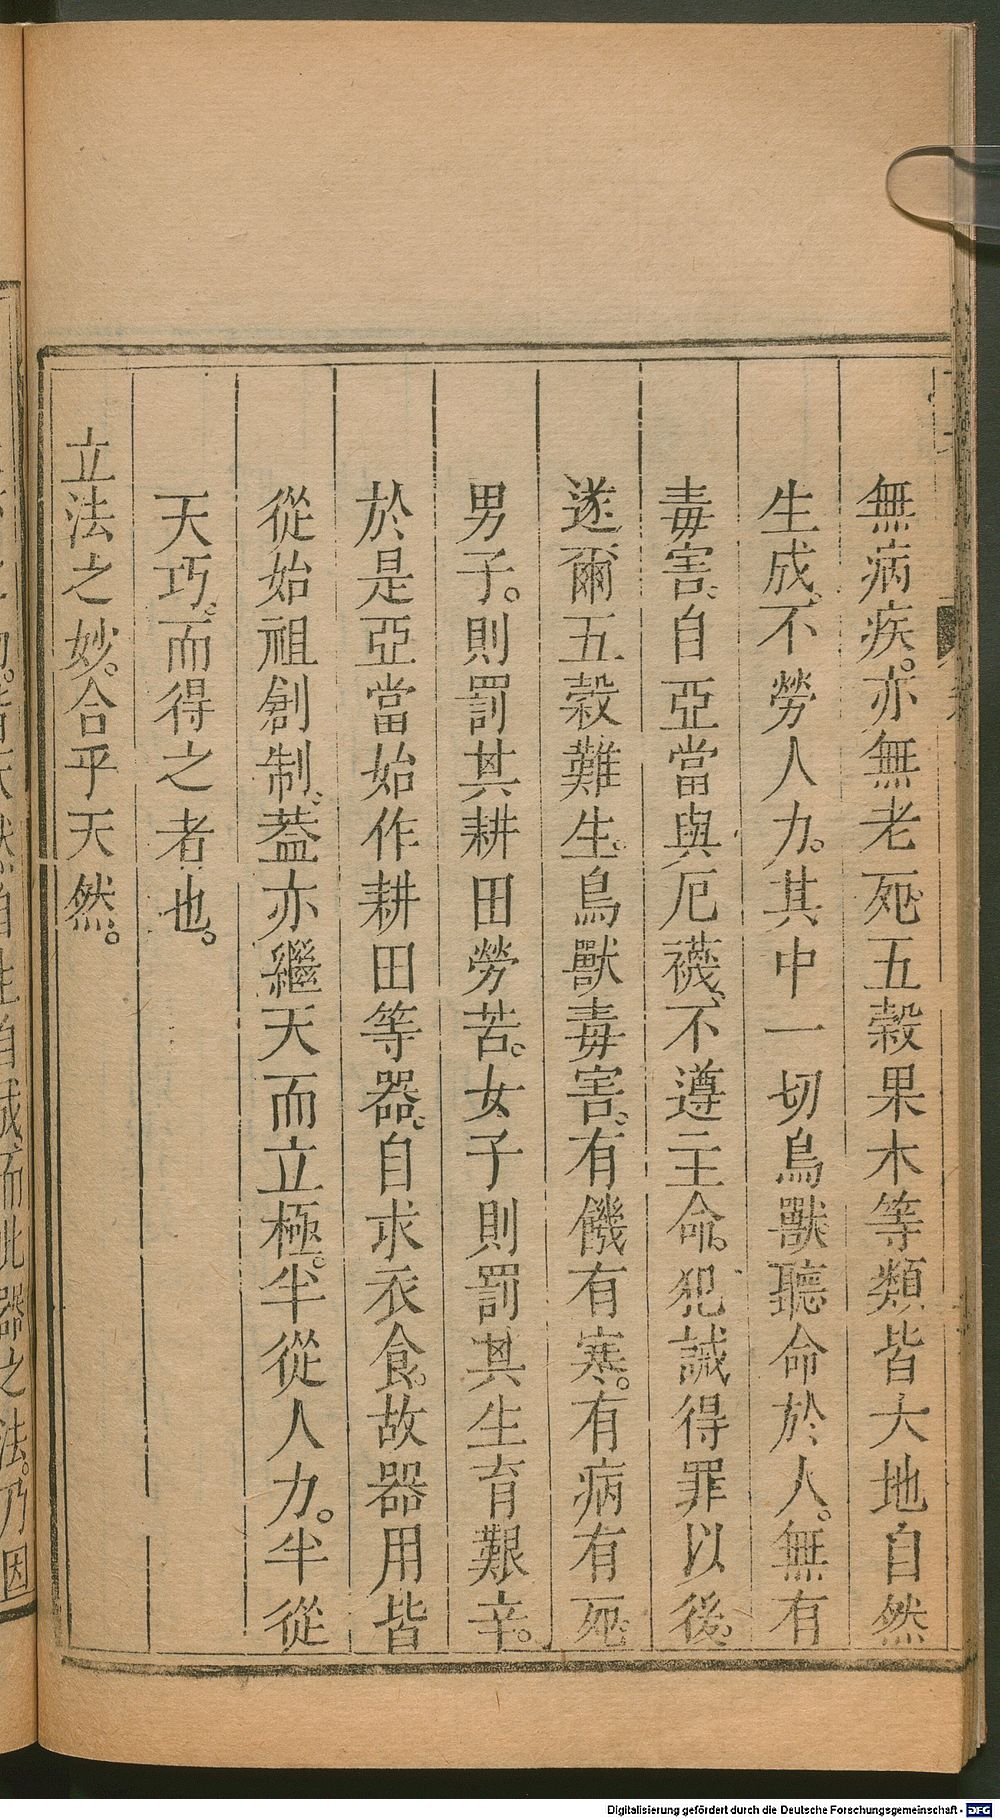 無病疾。亦無老死、五榖果木等類皆大地自然
生成、不勞人力。其中一切鳥獸聽命於人。無有
毒害、自亞當與厄襪、不遵主命。犯誡得罪以後。
遂爾五榖難生。鳥獸毒害、有饑有寒。有病有死、
男子。則罰其耕田勞苦。女子則罰其生育艱辛。
於是亞當始作耕田等器、自求衣食。故器用皆
從始祖創制、葢亦繼天而立極。半從人力。半從
天巧、而得之者也。
立法之妙。合乎天然。
自此器之法。乃因
Digitalisierung gefördert durch die Deutsche Forschungsgemeinschaft - DFG